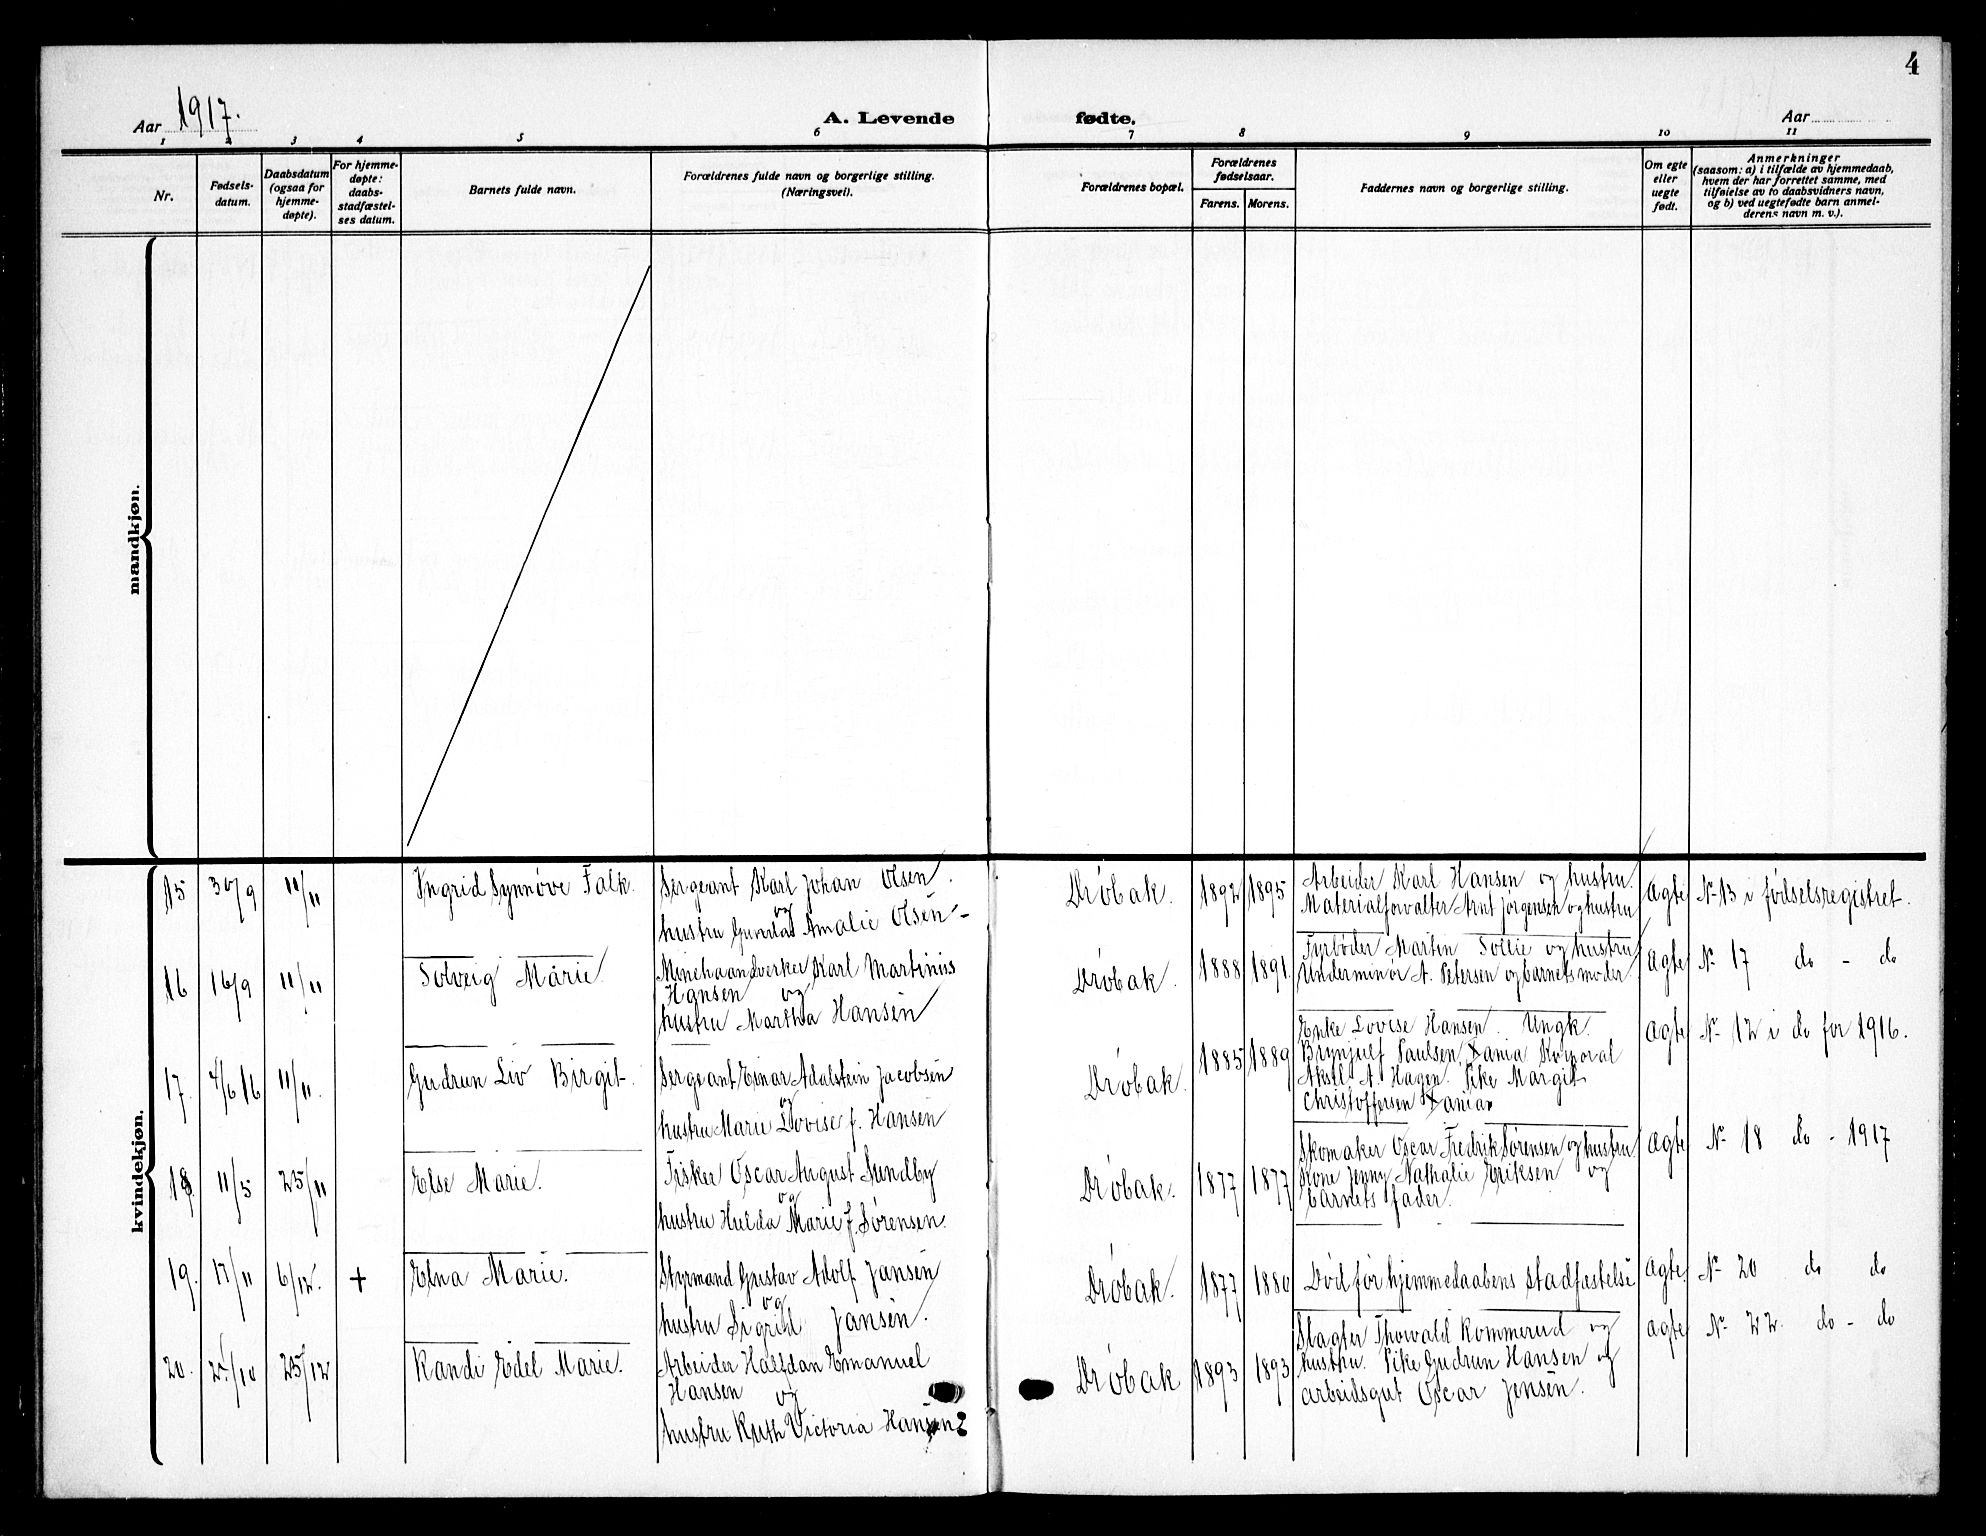 4
Aar 1917.
A. Levende fødte.
Aar
1 2 3 4 5 6 7 8 9 10 11
Nr.
Fødsels-
datum.
Daabsdatum
(ogsaa for
hjemme-
døpte).
For hjemme-
døpte:
daabs-
stadfæstel-
ses datum.
Barnets fulde navn.
Forældrenes fulde navn og borgerlige stilling.
(Næringsvei).
Forældrenes bopæl.
Forældrenes
fødselsaar.
Farens. Morens.
Faddernes navn og borgerlige stilling.
Om egte
eller
uegte
født.
Anmerkninger
(saasom: a) i tilfælde av hjemmedaab,
hvem der har forrettet samme, med
tilføielse av to daabsvidners navn,
og b) ved uegtefødte barn anmel-
derens navn m. v.).
mandkjøn.
kvindekjøn.
15 30/9 11/11 Ingrid Synnøve Falk.
Sergeant Karl Johan Olsen.
og
hustru Amalie Olsen
Drøbak. 1892 1895
Arbeider Karl Hansen og hustru.
Materialforvalter Arnt Jørgensen og hustru
Ægte No 13 i fødselsregistret.
16 16/9 11/11 Solveig Marie
Minehaandverker Karl Martinius
Hansen og
hustru Martha Hansen
Drøbak. 1888 1891.
Fyrbøder Martin Sollie og hustru
Underminør A. Petersen og barnets moder
Ægte No 17 do - do
17. 4/6 16 11/11. Gudrun Liv Birgit.
Sergeant Einar Adalstein Jacobsen
og
hustru Marie Lovise f. Hansen
Drøbak. 1885 1889
Enke Lovise Hansen. Ungk.
Brynjulf Paulsen, Xania Korporal
Aksel A. Hagen. Pike Margit
Christoffersen Xania
Ægte No 12 i do for 1916.
18. 11/5 25/11 Else Marie.
Fisker Oscar August Sundby
og
hustru Hulda Marie f. Sørensen.
Drøbak. 1877 1877
Skomaker Oscar Fredrik Sørensen og hustru
Kone Jenny Nathalie Eriksen og
barnets fader.
Ægte No 18 do - 1917
19. 17/11 6/12. + Elna Marie.
Styrmand Gustav Adolf Jansen
og
hustru Sigrid Jansen.
Drøbak. 1877 1880
Død før hjemmedaabens stadfæstelse
Ægte. No 20 do do
20. 2/10 25/12 Randi Edel Marie.
Arbeider Halfdan Emanuel
Hansen og
hustru Ruth Victoria Hansen
Drøbak 1893 1893
Slagter Thorvald Kommerud og
hustru. Pike Gudrun Hansen og
arbeidsgut Oscar Jensen.
Ægte No 22. do - do